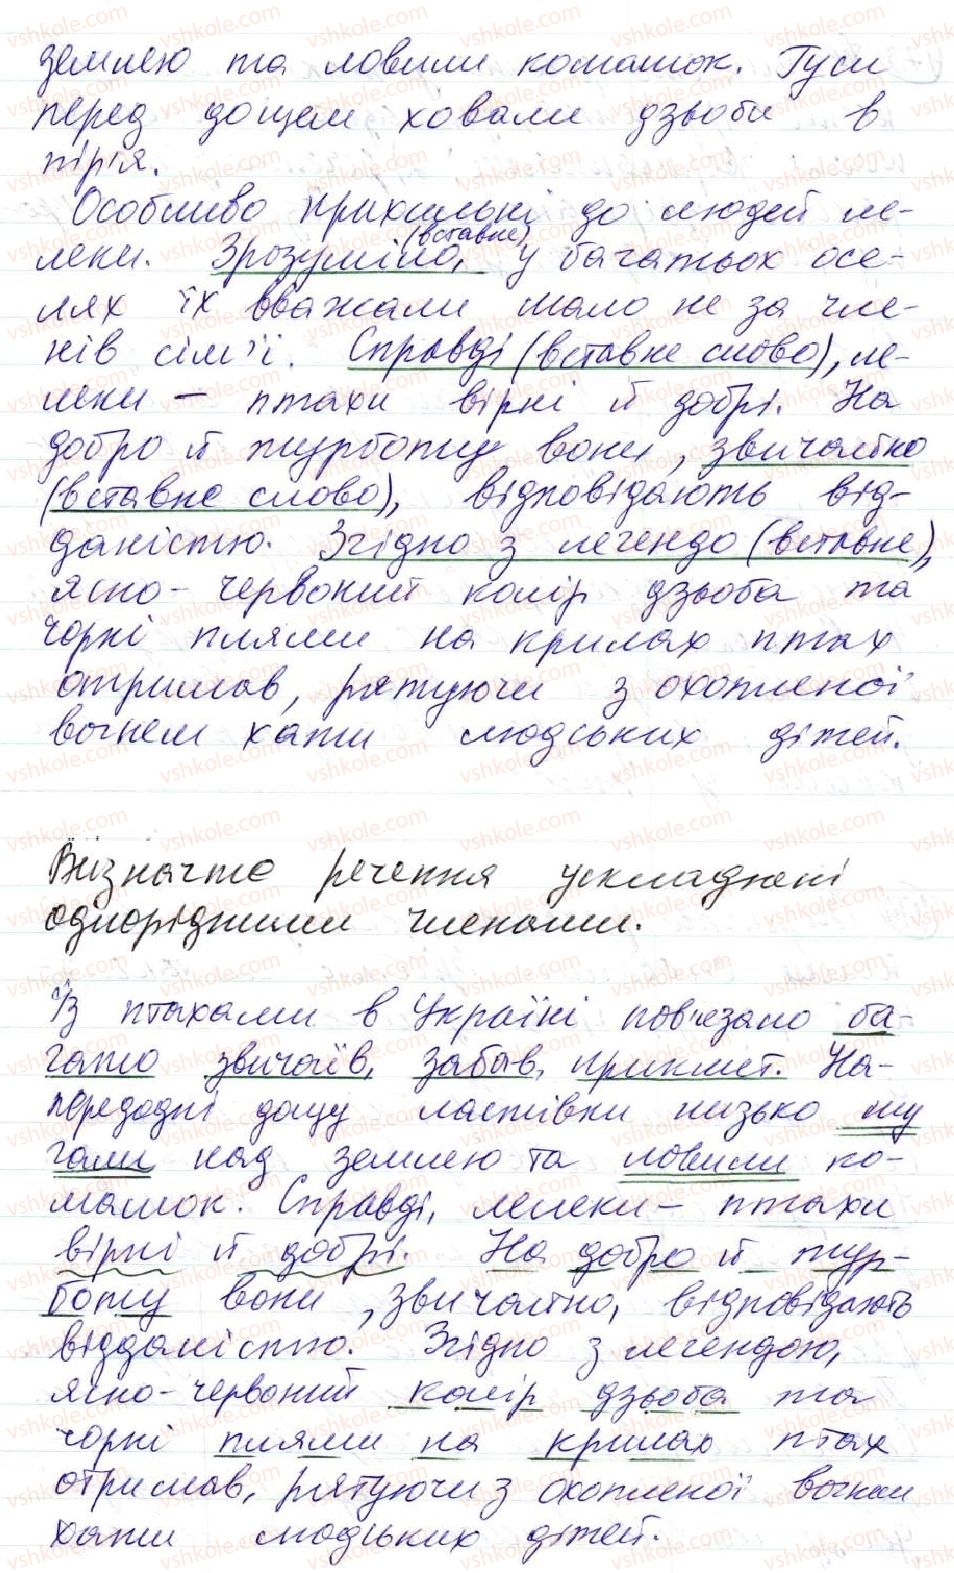 землею та ловили комашок. Гуси
перед дощем ховали дзьоби в
пір'я.
Особливо прихильні до людей ле-
(вставне)
леки. Зрозуміло, у багатьох осе-
лях їх вважали мало не за чле-
нів сім'ї. Справді (вставне слово), ле-
леки – птахи вірні й добрі. На
добро й турботу вони, звичайно
(вставне слово), відповідають від-
даністю. Згідно з легендо (вставне),
ясно-червоний колір дзьоба та
чорні плями на крилах птах
отримав, рятуючи з охопленої
вогнем хати людських дітей.
Визначте речення ускладнені
однорідними членами.
Із птахами в Україні пов'язано ба-
гато звичаїв, забав, прикмет. На-
передодні дощу ластівки низько шу
гали над землею та ловили ко-
машок. Справді, лелеки – птахи
вірні й добрі. На добро й тур-
боту вони, звичайно, відповідають
відданістю. Згідно з легендою,
ясно-червоний колір дзьоба та
чорні плями на крилах птах
отримав, рятуючи з охопленої вогнем
хати людських дітей.